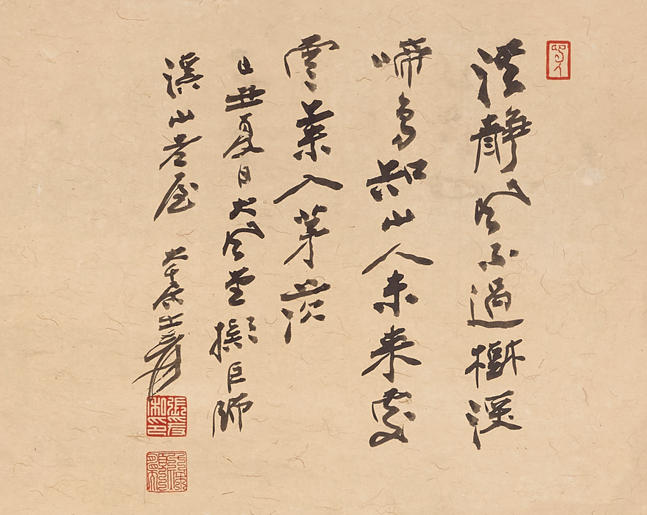 港靜風不過樹深
啼鳥知山人未來處
雲葉入茅茨
己丑夏日大風堂橅巨師
溪山老屋 大千居士爰